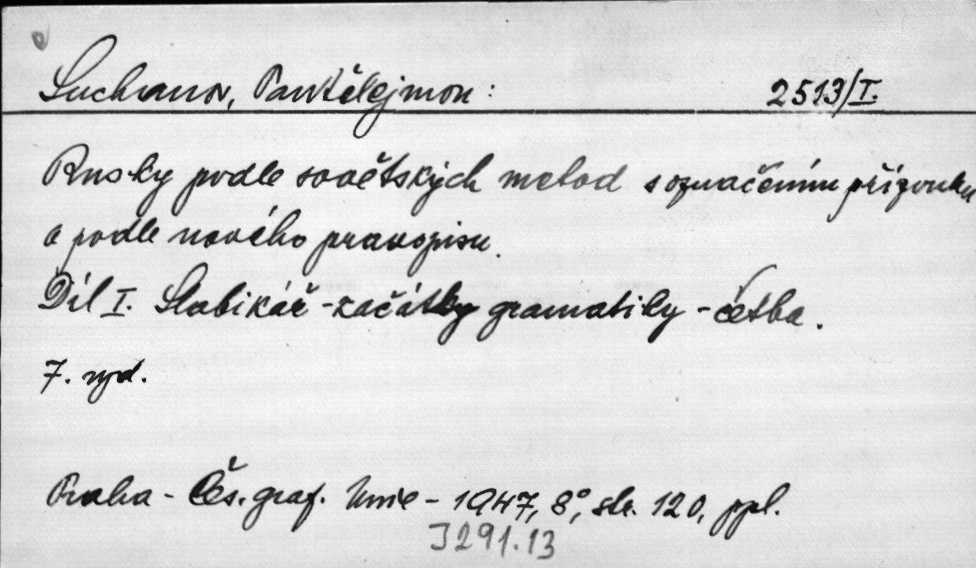 Suchanov, Pantělejmon: 2513/I.
Rusky podle sovětských metod s označením přízvuku
a podle nového pravopisu.
Díl I. Slabikář - začátky gramatiky - četba.
7. vyd.
Praha - Čes. graf. Unie - 1947, 8°, str. 120, ppl.
J291.13